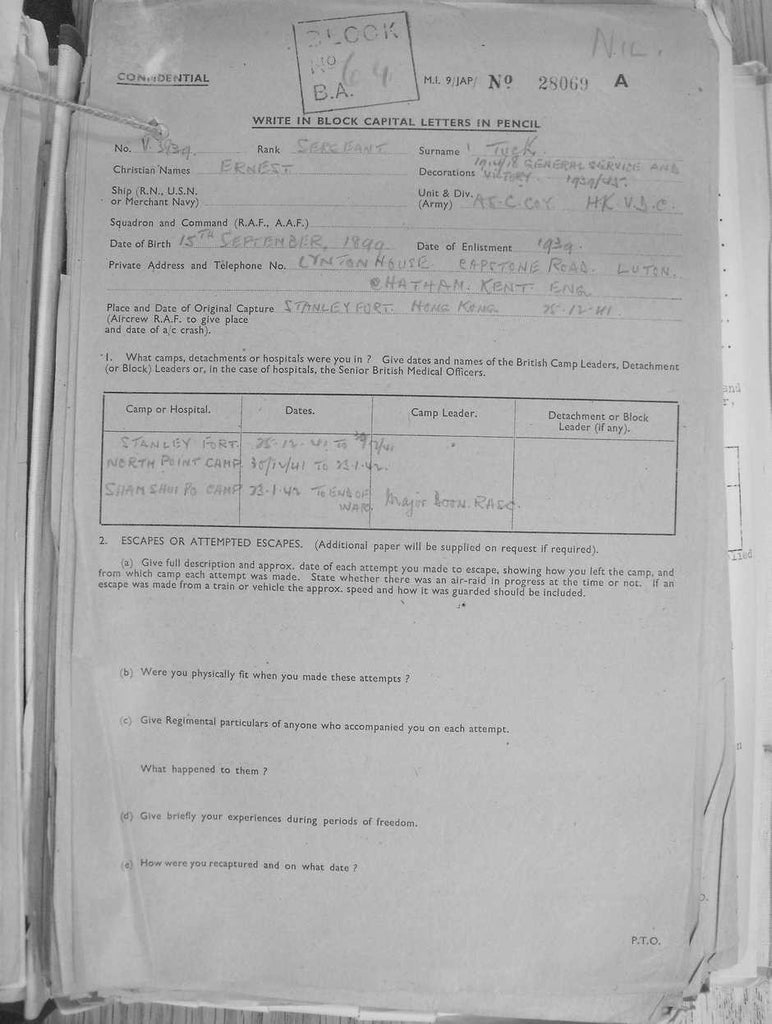 BLOCK
NO 64
B.A.
NIL.
CONFIDENTIAL
M.I. 9/JAP/ No 28069 A
WRITE IN BLOCK CAPITAL LETTERS IN PENCIL
No. V.3939. Rank SERGEANT Surname TUCK.
Christian Names ERNEST Decorations 1914/18 GENERAL SERVICE AND
VICTORY. 1939/45.
Ship (R.N., U.S.N.
or Merchant Navy)
Unit & Div.
(Army) A.S.C. COY H.K.V.D.C.
Squadron and Command (R.A.F., A.A.F.)
Date of Birth 15TH SEPTEMBER, 1899 Date of Enlistment 1939.
Private Address and Telephone No. LYNTON HOUSE. CAPSTONE ROAD. LUTON.
CHATHAM. KENT. ENG
Place and Date of Original Capture STANLEY FORT. HONG KONG 25-12-41
(Aircrew R.A.F. to give place
and date of a/c crash).
1. What camps, detachments or hospitals were you in ? Give dates and names of the British Camp Leaders, Detachment
(or Block) Leaders or, in the case of hospitals, the Senior British Medical Officers.
Camp or Hospital. Dates. Camp Leader. Detachment or Block
Leader (if any).
STANLEY FORT. 25-12-41 TO
NORTH POINT CAMP 30/12/41 TO 23-1-42.
SHAM SHUI PO CAMP 23-1-42 TO END OF
WAR. Major Boon. RASC.
2. ESCAPES OR ATTEMPTED ESCAPES. (Additional paper will be supplied on request if required).
(a) Give full description and approx. date of each attempt you made to escape, showing how you left the camp, and
from which camp each attempt was made. State whether there was an air-raid in progress at the time or not. If an
escape was made from a train or vehicle the approx. speed and how it was guarded should be included.
(b) Were you physically fit when you made these attempts ?
(c) Give Regimental particulars of anyone who accompanied you on each attempt.
What happened to them ?
(d) Give briefly your experiences during periods of freedom.
(e) How were you recaptured and on what date ?
P.T.O.